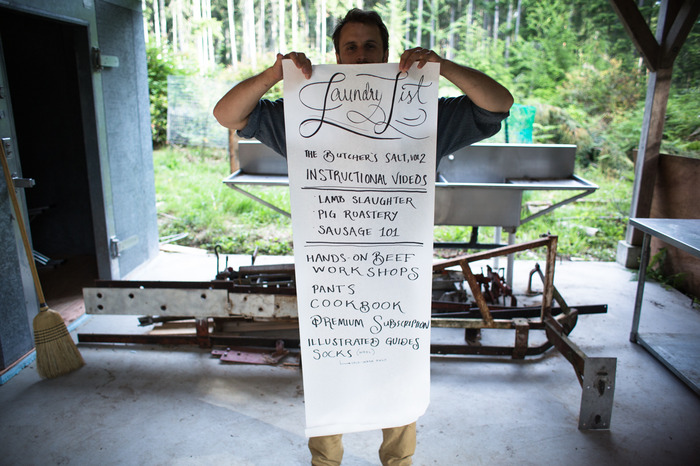 Laundry List
THE BUTCHER'S SALT, VOL 2
INSTRUCTIONAL VIDEOS
LAMB SLAUGHTER
PIG ROASTERY
SAUSAGE 101
HANDS-ON BEEF
WORKSHOPS
PANTS
COOKBOOK
PREMIUM SUBSCRIPTION
ILLUSTRATED GUIDES
SOCKS